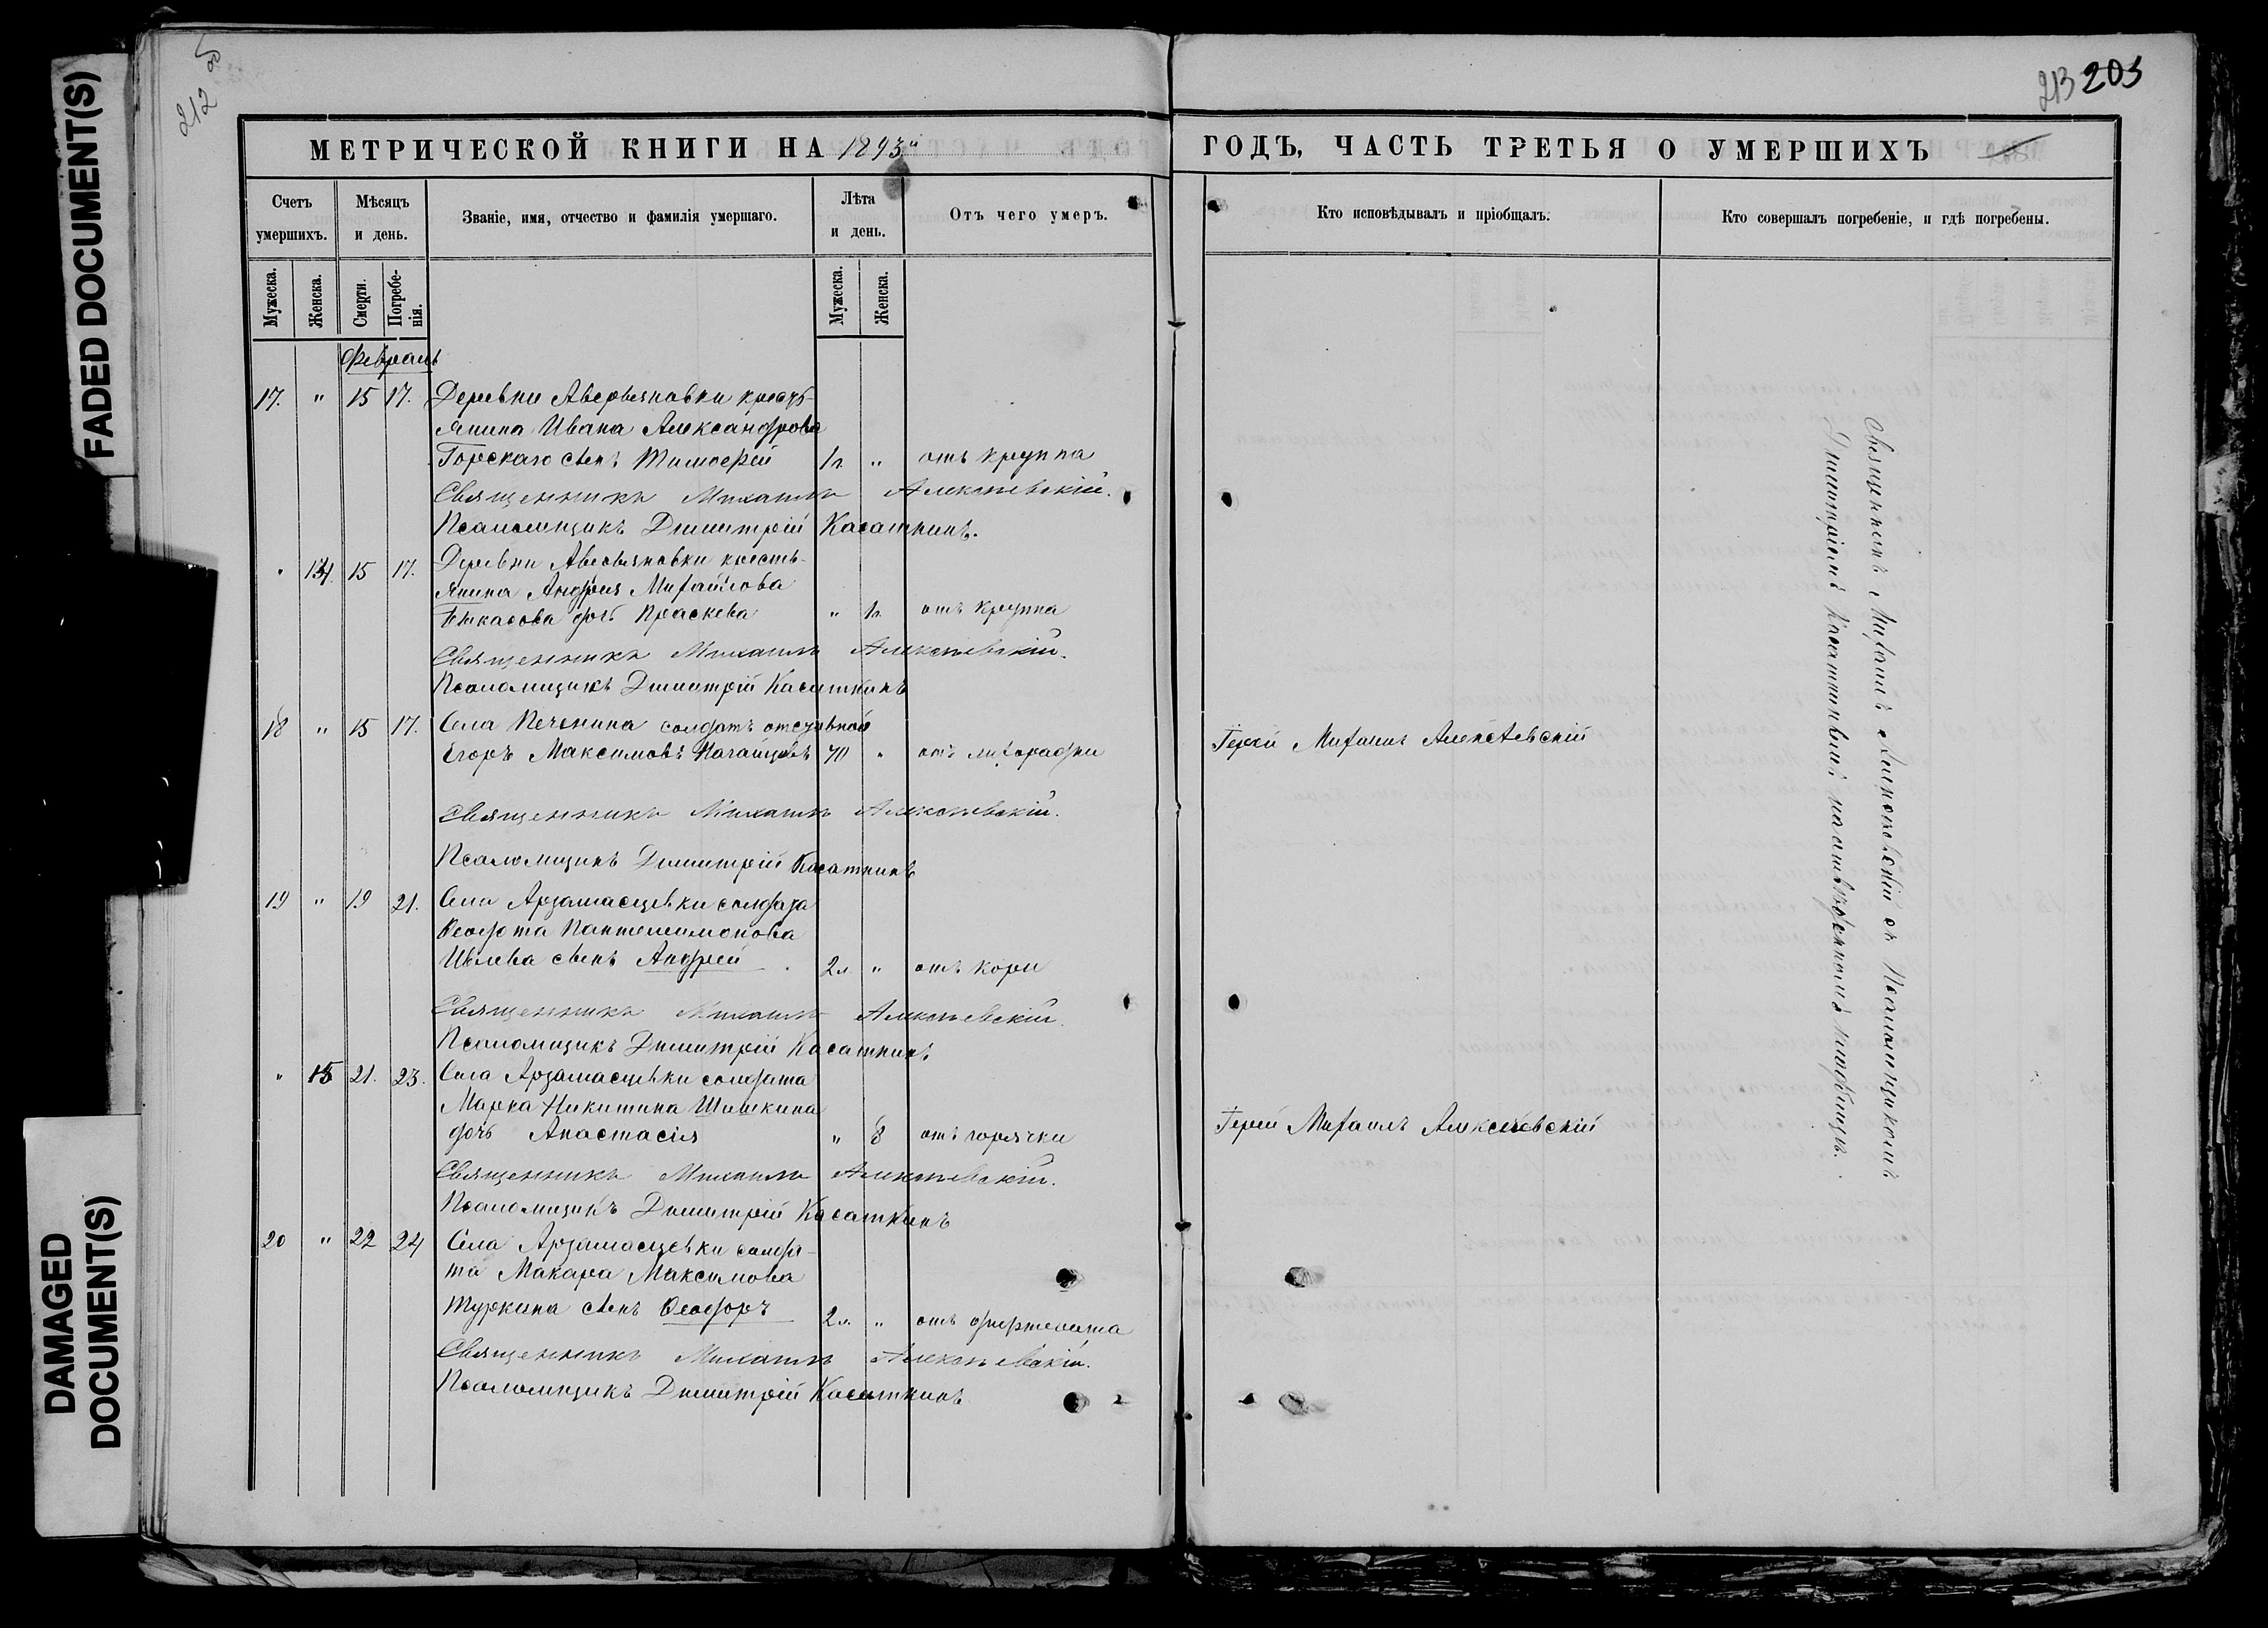 FADED DOCUMENT(S)
DAMAGED
DOCUMENT(S)
212
213 203
МЕТРИЧЕСКОЙ КНИГИ НА 1893й
ГОДЪ, ЧАСТЬ ТРЕТЬЯ О УМЕРШИХЪ
Счетъ умершихъ.
Мѣсяцъ и день.
Званіе, имя, отчество и фамилія умершаго.
Лѣта и день.
Отъ чего умеръ.
Кто исповѣдывалъ и пріобщалъ.
Кто совершалъ погребеніе, и гдѣ погребены.
Мужеска. Женска. Смерти. Погребе-нія. Мужеска. Женска.
Февраль
17. " 15 17. Деревни Аверьяновки кресть-
янина Ивана Александрова
Горскаго сынъ Тимофей 1г. " отъ круппа
Священникъ Михаилъ Алексѣевскій.
Псаломщикъ Димитрій Касаткинъ.
" 14. 15 17. Деревни Аверьяновки кресть-
янина Андрея Михайлова
дочь Праскева " 1г. отъ круппа
Священникъ Михаилъ Алексѣевскій.
Псаломщикъ Димитрій Касаткинъ
18 " 15 17. Села Печенина солдатъ отставной
Егоръ Максимовъ 70 " отъ лихорадки Іерей Михаилъ Алексѣевскій
Священникъ Михаилъ Алексѣевскій.
Псаломщикъ Димитрій Касаткинъ
19 " 19 21. Села Арзамасцевки солдата
Ѳеодота Пантелеимонова
Ивлева сынъ Андрей 2л. " отъ кори
Священникъ Михаилъ Алексѣевскій.
Псаломщикъ Димитрій Касаткинъ
" 15 21. 23. Села Арзамасцевки солдата
Марка Никитина Шишкина
дочь Анастасія " 8 отъ горячки Іерей Михаилъ Алексѣевскій
Священникъ Михаилъ Алексѣевскій.
Псаломщикъ Димитрій Касаткинъ
20 " 22 24 Села Арзамасцевки солда-
та Макара Максимова
Туркина сынъ Ѳеодоръ 2л. " отъ дифтерита
Священникъ Михаилъ Алексѣевскій.
Псаломщикъ Димитрій Касаткинъ
Священникъ Михаилъ Алексѣевскій съ Псаломщикомъ
Димитріемъ Касаткинымъ на отведенномъ кладбищѣ.